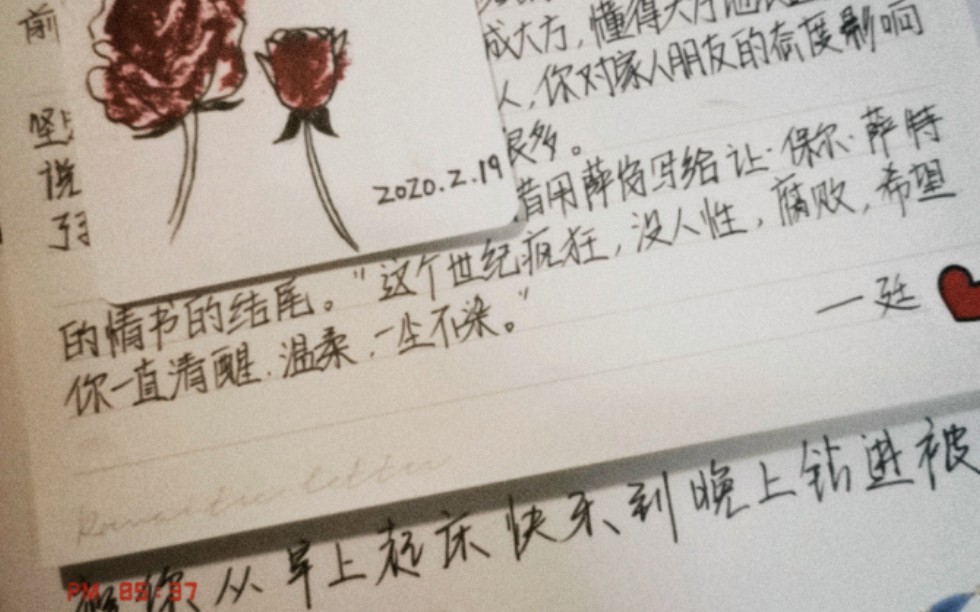 前
坚
说
成大方，懂得大方地
人，你对家人朋友的态度影响
很多。
2020.2.19
借用薛傍写给让·保尔·萨特
的情书的结尾。“这个世纪疯狂，没人性，腐败，希望
你一直清醒.温柔.一尘不染。”
一廷
Romantic letter
你从早上起床快乐到晚上钻进被
PM 05:37